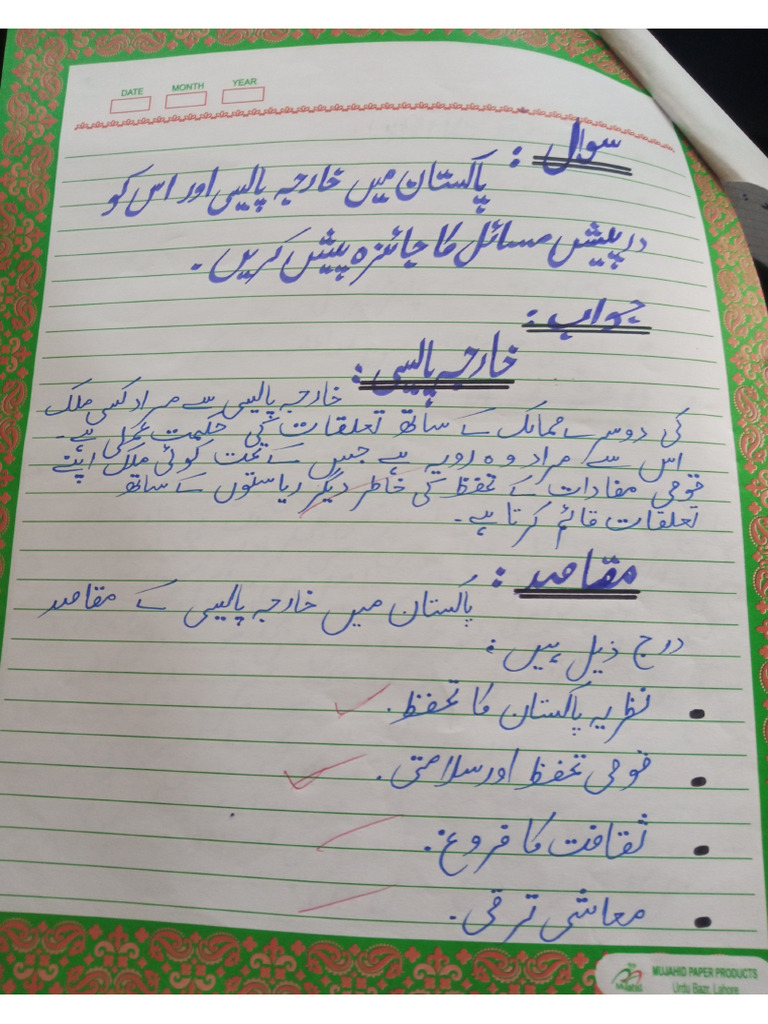 DATE MONTH YEAR
سوال :
پاکستان میں خارجہ پالیسی اور اس کو
درپیش مسائل کا جائزہ پیش کریں۔
جواب :
خارجہ پالیسی :
خارجہ پالیسی سے مراد کسی ملک
کی دوسرے ممالک کے ساتھ تعلقات کی حکمت عملی ہے۔
اس سے مراد وہ رویہ ہے جس کے تحت کوئی ملک اپنے
قومی مفادات کے تحفظ کی خاطر دیگر ریاستوں کے ساتھ
تعلقات قائم کرتا ہے۔
مقاصد :
پاکستان میں خارجہ پالیسی کے مقاصد
درج ذیل ہیں :
• نظریہ پاکستان کا تحفظ۔
• قومی تحفظ اور سلامتی۔
• ثقافت کا فروغ۔
• معاشی ترقی۔
Mujahid
MUJAHID PAPER PRODUCTS
Urdu Bazr, Lahore